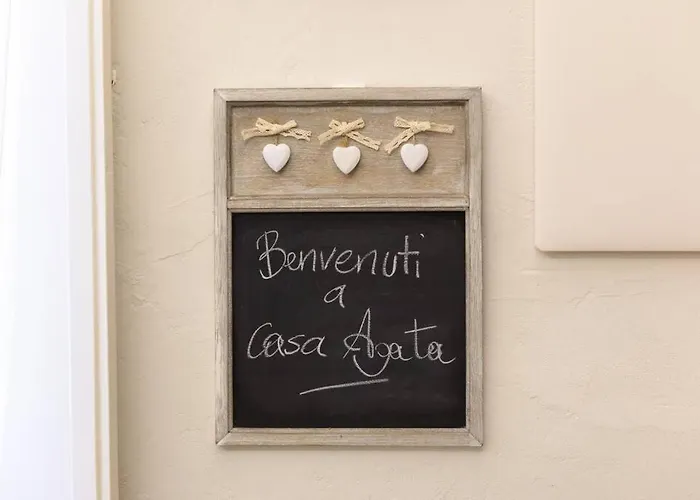 Benvenuti
a
Casa Agata